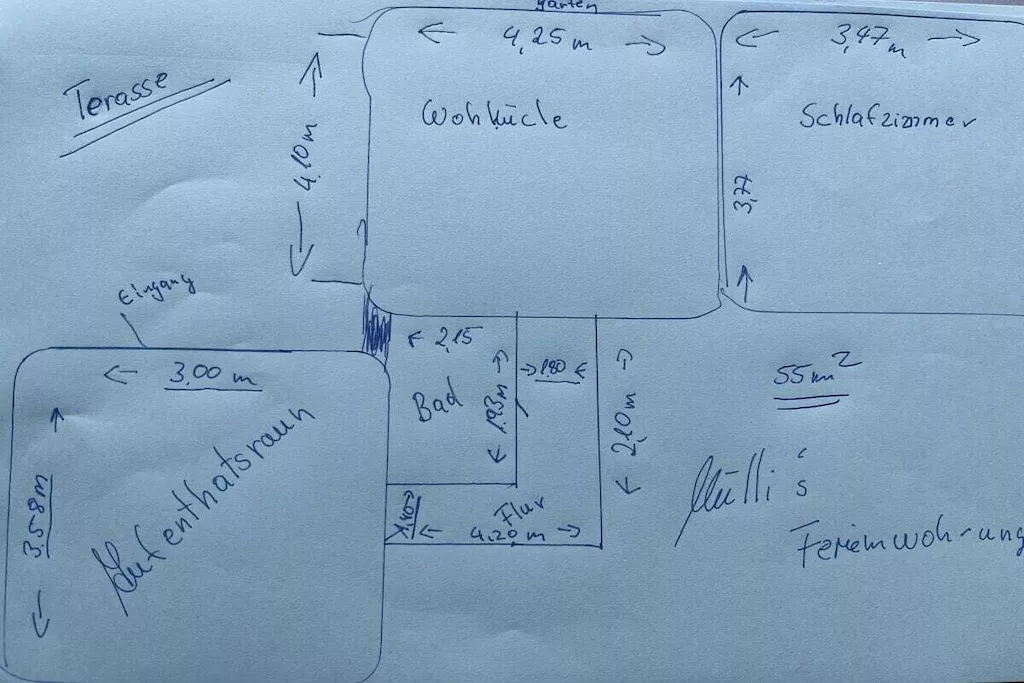 Garten
4,25 m
3,47 m
Terasse
4.10 m
Wohküche
Schlafzimmer
3,77
Eingang
2,15
1,80
3,00 m
Bad
1.93m
2,10 m
55m²
3.58m
Aufenthatsraum
Flur
4.20 m
Mülli's
Ferienwohnung